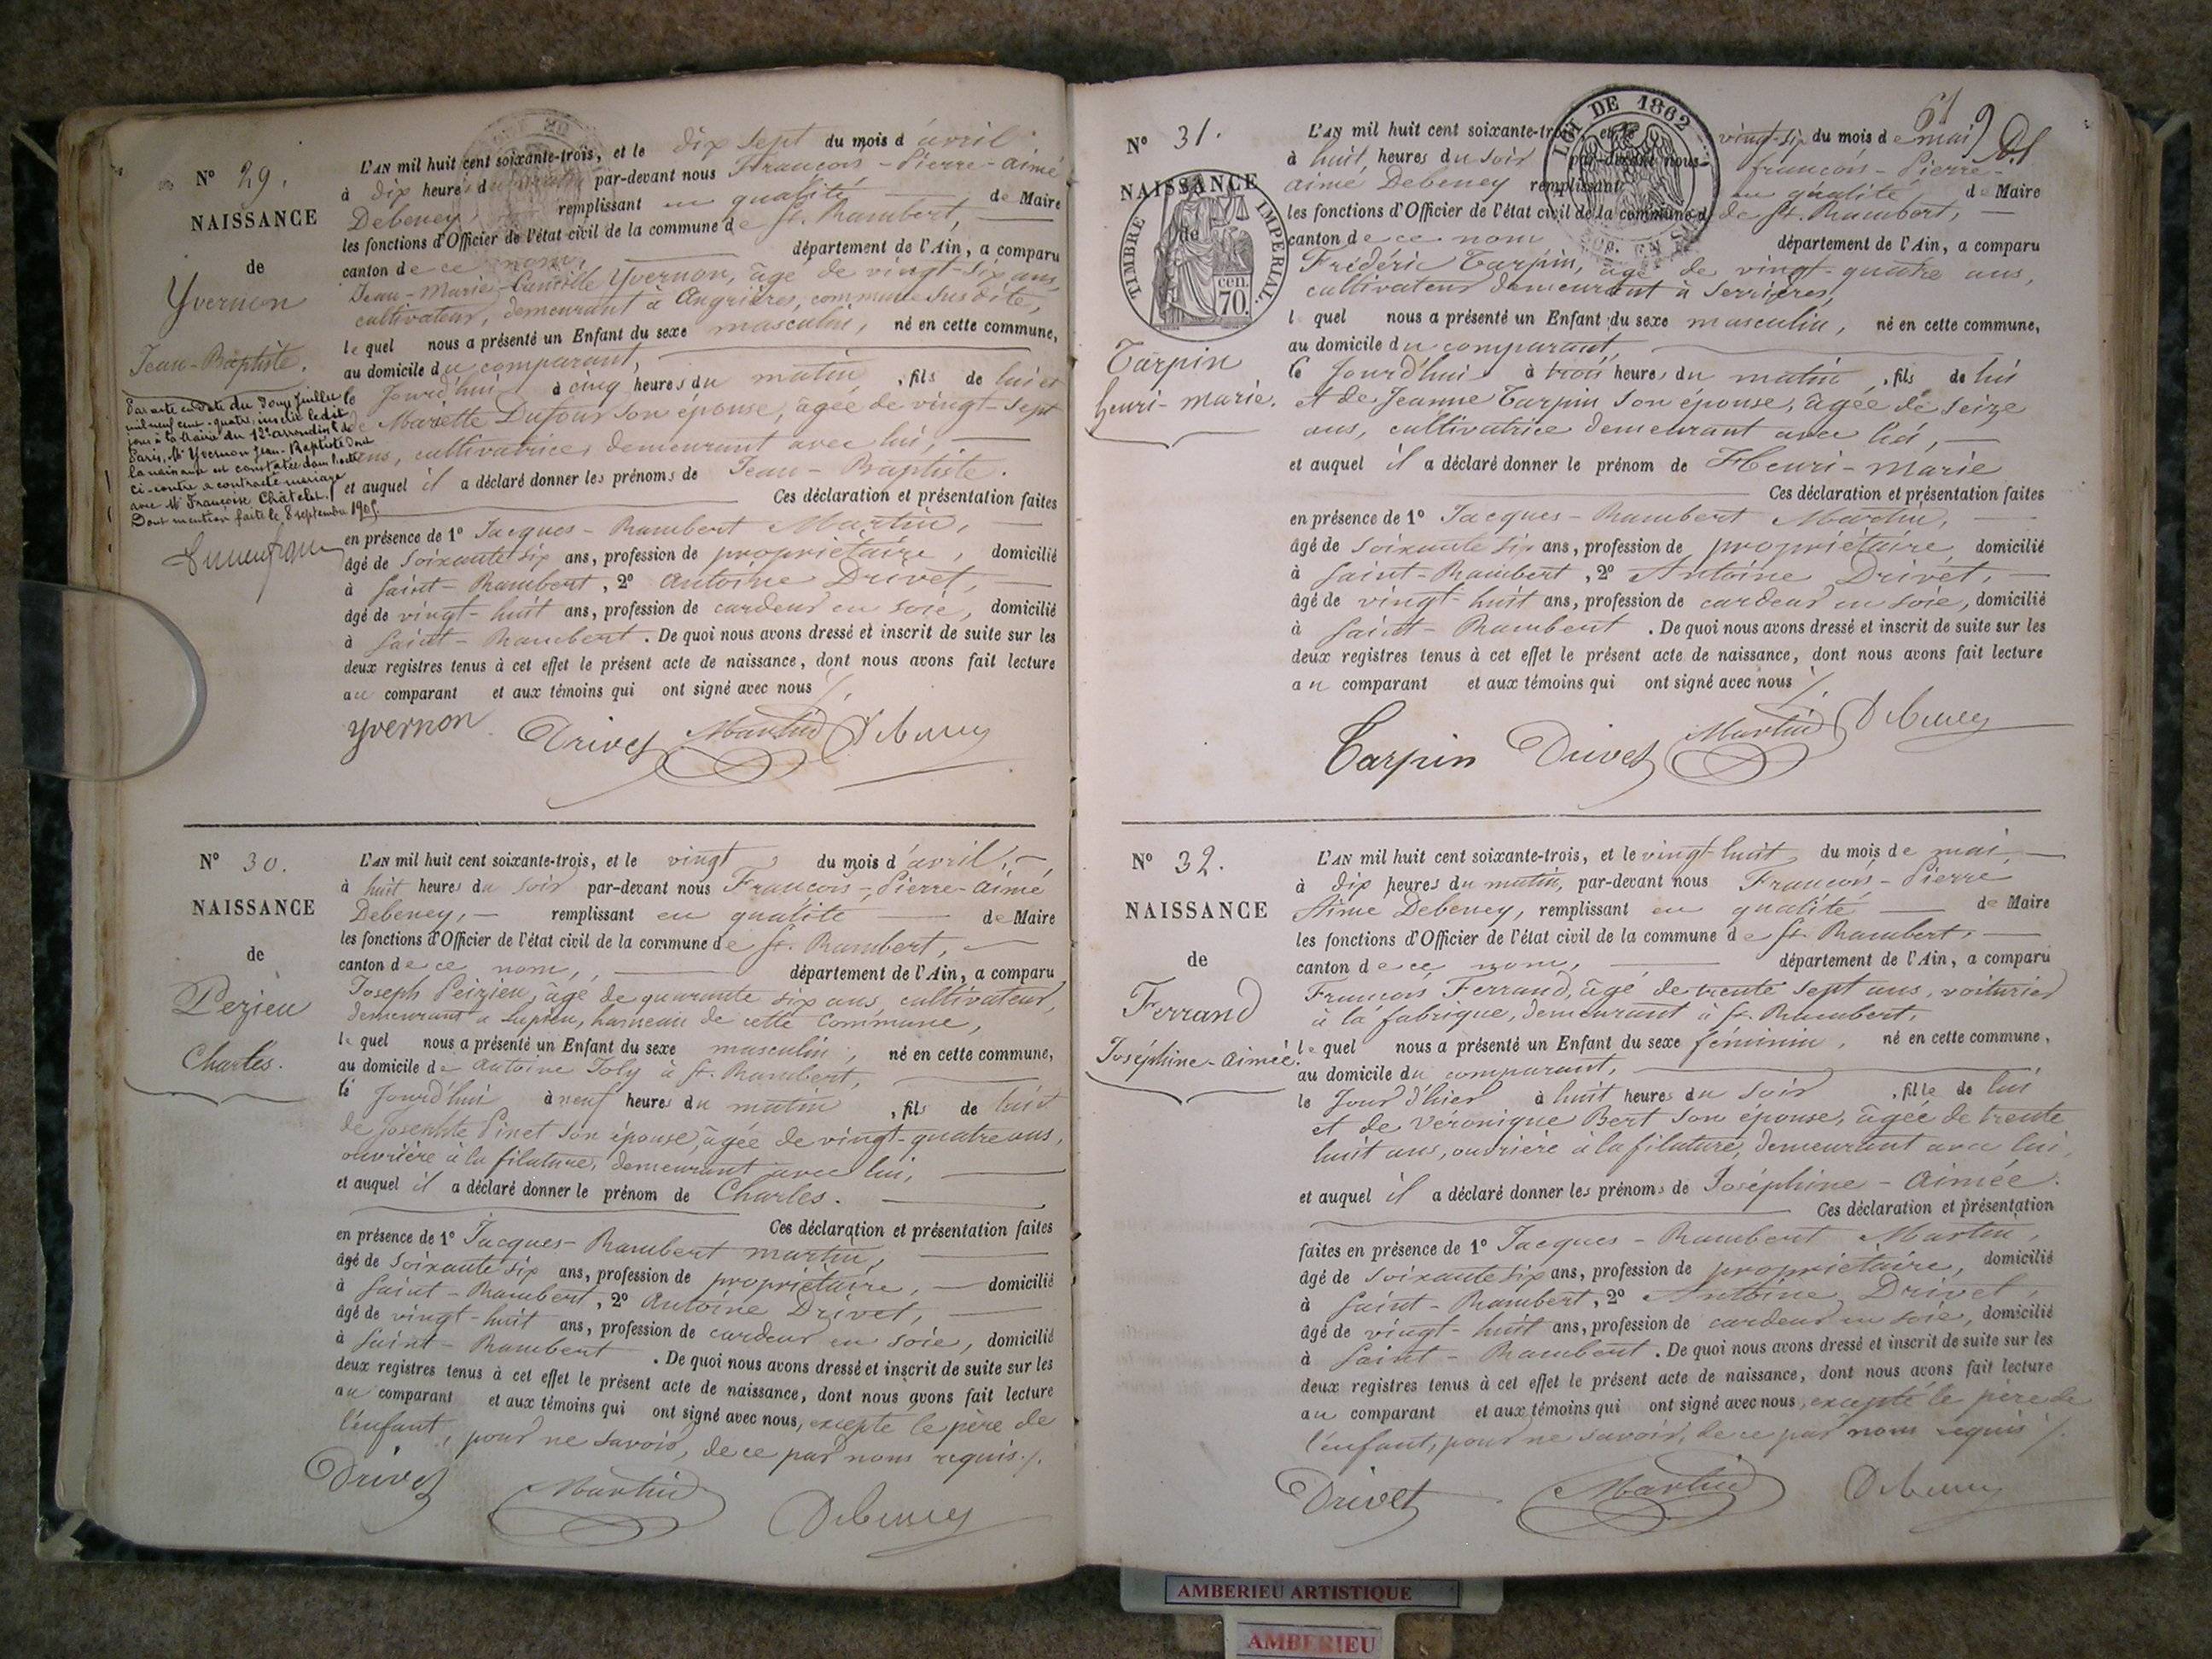 N° 29.
NAISSANCE
de
Yvernon
Jean-Baptiste.
Par acte en date du douze juillet
mil neuf cent quatre, inscrit le dit
jour à la Mairie du 12e arrondist de
Paris, Mr Yvernon Jean-Baptiste dont
la naissance est constatée dans l'acte
ci-contre a contracté mariage
avec Mle Françoise Châtelet.
Dont mention faite le 8 septembre 1905.
L'AN mil huit cent soixante-trois, et le dix sept du mois d'avril
à dix heures du matin par-devant nous François-Pierre-Aimé
Debeney remplissant en qualité de Maire
les fonctions d'Officier de l'état civil de la commune de St. Rambert,
canton de ce nom, département de l'Ain, a comparu
Jean-Marie-Camille Yvernon, âgé de vingt-six ans,
cultivateur, demeurant à Angrières, commune susdite,
lequel nous a présenté un Enfant du sexe masculin, né en cette commune,
au domicile du comparant,
le Jourd'hui à cinq heures du matin, fils de lui et
de Mariette Dufour son épouse, âgée de vingt-sept
ans, cultivatrice, demeurant avec lui,
et auquel il a déclaré donner les prénoms de Jean-Baptiste.
Ces déclaration et présentation faites
en présence de 1° Jacques-Rambert Martin,
âgé de soixante six ans, profession de propriétaire, domicilié
à Saint-Rambert, 2° Antoine Drivet,
âgé de vingt-huit ans, profession de cardeur en soie, domicilié
à Saint-Rambert. De quoi nous avons dressé et inscrit de suite sur les
deux registres tenus à cet effet le présent acte de naissance, dont nous avons fait lecture
au comparant et aux témoins qui ont signé avec nous
yvernon Drivet Martin Debeney
N° 30.
NAISSANCE
de
Pezieu
Charles.
L'AN mil huit cent soixante-trois, et le vingt du mois d'avril,
à huit heures du soir par-devant nous François-Pierre-Aimé
Debeney, remplissant en qualité de Maire
les fonctions d'Officier de l'état civil de la commune de St. Rambert,
canton de ce nom, département de l'Ain, a comparu
Joseph Peizieu, âgé de quarante six ans, cultivateur,
demeurant à Lupieu, hameau de cette commune,
lequel nous a présenté un Enfant du sexe masculin, né en cette commune,
au domicile de Antoine Joly à St. Rambert,
le Jourd'hui à neuf heures du matin, fils de lui et
de Josephte Pinet son épouse, âgée de vingt-quatre ans,
ouvrière à la filature, demeurant avec lui,
et auquel il a déclaré donner le prénom de Charles.
Ces déclaration et présentation faites
en présence de 1° Jacques-Rambert Martin,
âgé de soixante six ans, profession de propriétaire, domicilié
à Saint-Rambert, 2° Antoine Drivet,
âgé de vingt-huit ans, profession de cardeur en soie, domicilié
à Saint-Rambert. De quoi nous avons dressé et inscrit de suite sur les
deux registres tenus à cet effet le présent acte de naissance, dont nous avons fait lecture
au comparant et aux témoins qui ont signé avec nous, excepté le père de
l'enfant, pour ne savoir, de ce par nous requis.
Drivet Martin Debeney
N° 31.
NAISSANCE
de
TIMBRE IMPERIAL.
70. cen
Tarpin
henri-marie.
LOI DE 1862
L'AN mil huit cent soixante-trois, et le vingt-six du mois de mai
à huit heures du soir par-devant nous François-Pierre-
Aimé Debeney remplissant en qualité de Maire
les fonctions d'Officier de l'état civil de la commune de St. Rambert,
canton de ce nom département de l'Ain, a comparu
Frédéric Tarpin, âgé de vingt-quatre ans,
cultivateur demeurant à Serrières,
lequel nous a présenté un Enfant du sexe masculin, né en cette commune,
au domicile du comparant,
le Jourd'hui à trois heures du matin, fils de lui
et de Jeanne Tarpin son épouse, âgée de seize
ans, cultivatrice demeurant avec lui,
et auquel il a déclaré donner le prénom de Henri-Marie
Ces déclaration et présentation faites
en présence de 1° Jacques-Rambert Martin,
âgé de soixante six ans, profession de propriétaire, domicilié
à Saint-Rambert, 2° Antoine Drivet,
âgé de vingt-huit ans, profession de cardeur en soie, domicilié
à Saint-Rambert. De quoi nous avons dressé et inscrit de suite sur les
deux registres tenus à cet effet le présent acte de naissance, dont nous avons fait lecture
au comparant et aux témoins qui ont signé avec nous
Tarpin Drivet Martin Debeney
N° 32.
NAISSANCE
de
Ferrand
Joséphine-Aimée.
L'AN mil huit cent soixante-trois, et le vingt-huit du mois de mai,
à dix heures du matin, par-devant nous François-Pierre
Aimé Debeney, remplissant en qualité de Maire
les fonctions d'Officier de l'état civil de la commune de St. Rambert,
canton de ce nom, département de l'Ain, a comparu
François Ferrand, âgé de trente sept ans, voiturier
à la fabrique, demeurant à St. Rambert,
lequel nous a présenté un Enfant du sexe féminin, né en cette commune,
au domicile du comparant,
le Jour d'hier à huit heures du soir, fille de lui
et de Véronique Bert son épouse, âgée de trente
huit ans, ouvrière à la filature, demeurant avec lui,
et auquel il a déclaré donner les prénoms de Joséphine-Aimée.
Ces déclaration et présentation
faites en présence de 1° Jacques-Rambert Martin,
âgé de soixante six ans, profession de propriétaire, domicilié
à Saint-Rambert, 2° Antoine Drivet,
âgé de vingt-huit ans, profession de cardeur en soie, domicilié
à Saint-Rambert. De quoi nous avons dressé et inscrit de suite sur les
deux registres tenus à cet effet le présent acte de naissance, dont nous avons fait lecture
au comparant et aux témoins qui ont signé avec nous, excepté le père de
l'enfant, pour ne savoir, de ce par nous requis
Drivet Martin Debeney
AMBERIEU ARTISTIQUE
AMBERIEU